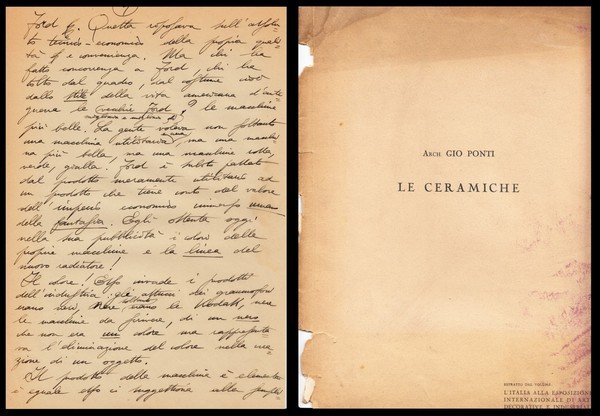 Ford £. Questa riposava sull'assolu-
to tecnico-economico della propria quali-
tà di e convenienza. Ma chi ha
fatto concorrenza a Ford, chi ha
tolto dal quadro, dal costume cioè
dallo stile della vita americana d'ante
guerra le vecchie Ford, ? le macchine
più belle. La gente voleva non soltanto
una macchina utilitaria, ma una macchi-
na più bella, ma una macchina rossa,
verde, gialla. Ford è subito passato
dal prodotto meramente utilitario ad
un prodotto che tiene conto del valore
dell'impero economico immenso umano
della fantasia. Egli ostenta oggi
nella sua pubblicità i colori delle
proprie macchine e la linea del
nuovo radiatore!
Il colore! Esso invade i prodotti
dell'industria: gli dei grammofoni
erano neri, erano le Kodak, nere
le macchine da scrivere, di un nero
che non era un colore ma rappresenta
va l'eliminazione del colore nella crea-
zione di un oggetto.
Il prodotto della macchina è elementare
è eguale esso ci suggestiona alla
ARCH GIO PONTI
LE CERAMICHE
ESTRATTO DAL VOLUME
L'ITALIA ALLA ESPOSIZIONE
INTERNAZIONALE DI ARTI
DECORATIVE E INDUSTRIALI